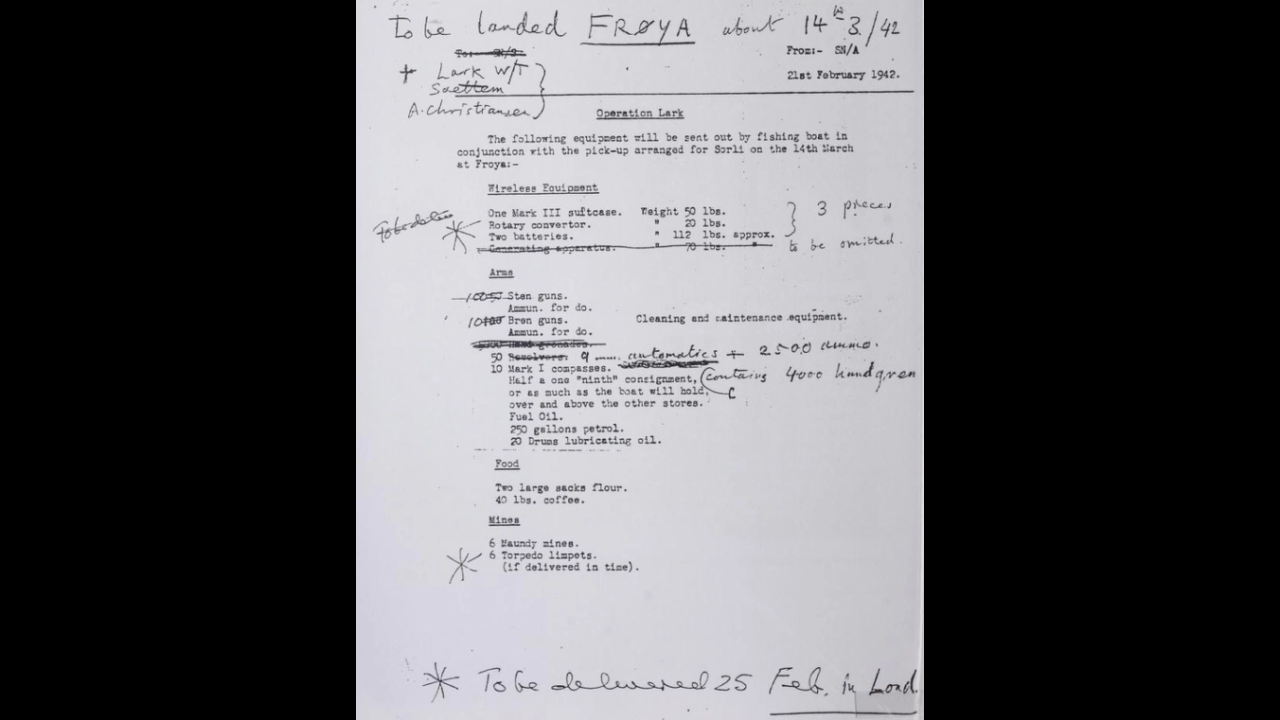 To be landed FRØYA about 14th 3/42
To:- SN/S
From:- SN/A
+ Lark W/T
21st February 1942.
Saettem
A. Christiansen
Operation Lark
The following equipment will be sent out by fishing boat in
conjunction with the pick-up arranged for Sorli on the 14th March
at Froya:-
Wireless Equipment
To be
One Mark III suitcase. Weight 50 lbs.
3 pieces
Rotary convertor. " 20 lbs.
Two batteries. " 112 lbs. approx.
Generating apparatus. " 70 lbs. "
to be omitted.
Arms
Sten guns.
Ammun. for do.
10 Bren guns. Cleaning and maintenance equipment.
Ammun. for do.
Hand grenades.
50 Revolvers. 9 ...... automatics + 2500 ammo.
10 Mark I compasses.
Half a one "ninth" consignment, (contains 4000 handgren
or as much as the boat will hold,
over and above the other stores.
Fuel Oil.
250 gallons petrol.
20 Drums lubricating oil.
Food
Two large sacks flour.
40 lbs. coffee.
Mines
6 Maundy mines.
6 Torpedo limpets.
(if delivered in time).
To be delivered 25 Feb. in Lond.